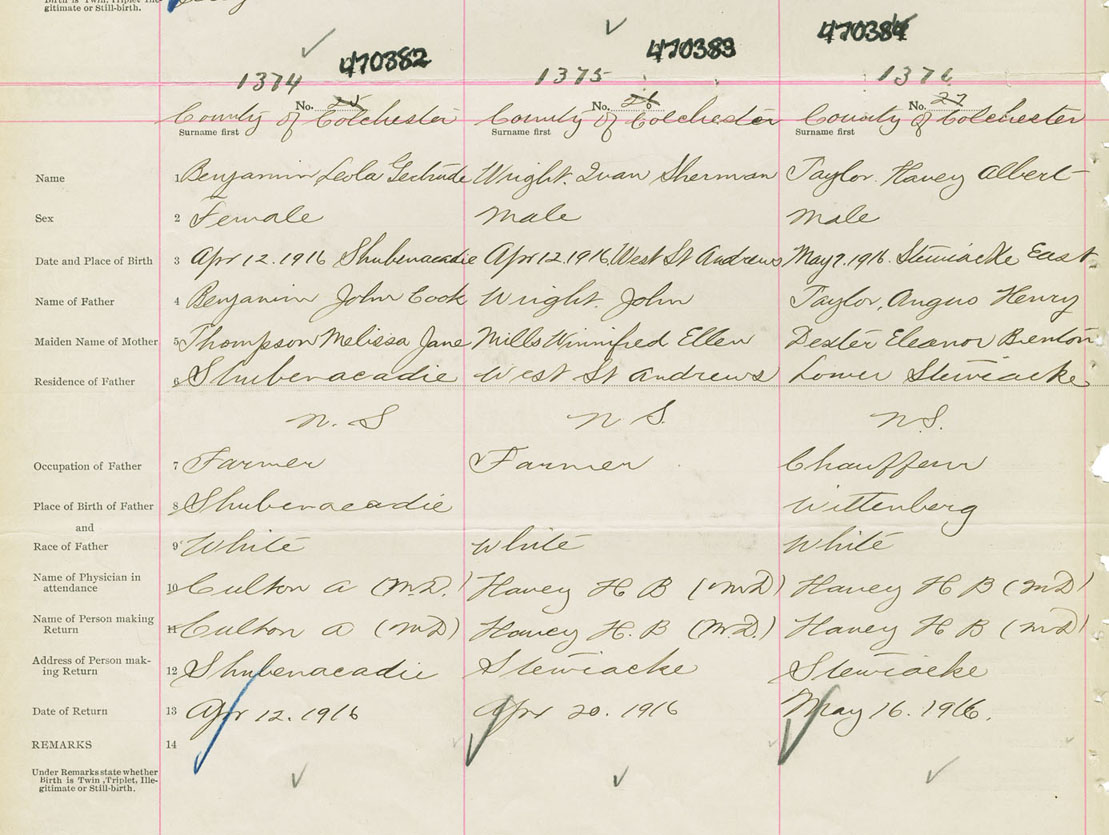 Birth is Twin, Triplet, Ille-
gitimate or Still-birth.
1374 470382 1375 470383 1376 470384
No. 25 No. 26 No. 27
County of Colchester County of Colchester County of Colchester
Surname first Surname first Surname first
Name 1 Benjamin Leola Gertrude Wright. Ivan Sherman Taylor. Havey Albert
Sex 2 Female male male
Date and Place of Birth 3 Apr 12. 1916 Shubenacadie Apr 12. 1916. West St Andrews May 7. 1916. Stewiacke East
Name of Father 4 Benjamin John Cook Wright. John Taylor, Angus Henry
Maiden Name of Mother 5 Thompson Melissa Jane Mills Winnifred Ellen Dexter Eleanor Benton
Residence of Father 6 Shubenacadie West St Andrews Lower Stewiacke
N. S N S. N S.
Occupation of Father 7 Farmer Farmer Chauffeur
Place of Birth of Father 8 Shubenacadie Wittenberg
and
Race of Father 9 White White White
Name of Physician in
attendance 10 Culton A (M.D.) Havey H B (MD) Havey H B (MD)
Name of Person making
Return 11 Culton A (MD) Havey H. B (M.D.) Havey H B (MD)
Address of Person mak-
ing Return 12 Shubenacadie Stewiacke Stewiacke
Date of Return 13 Apr 12. 1916 Apr 20. 1916 May 16. 1916.
REMARKS 14
Under Remarks state whether
Birth is Twin, Triplet, Ille-
gitimate or Still-birth.